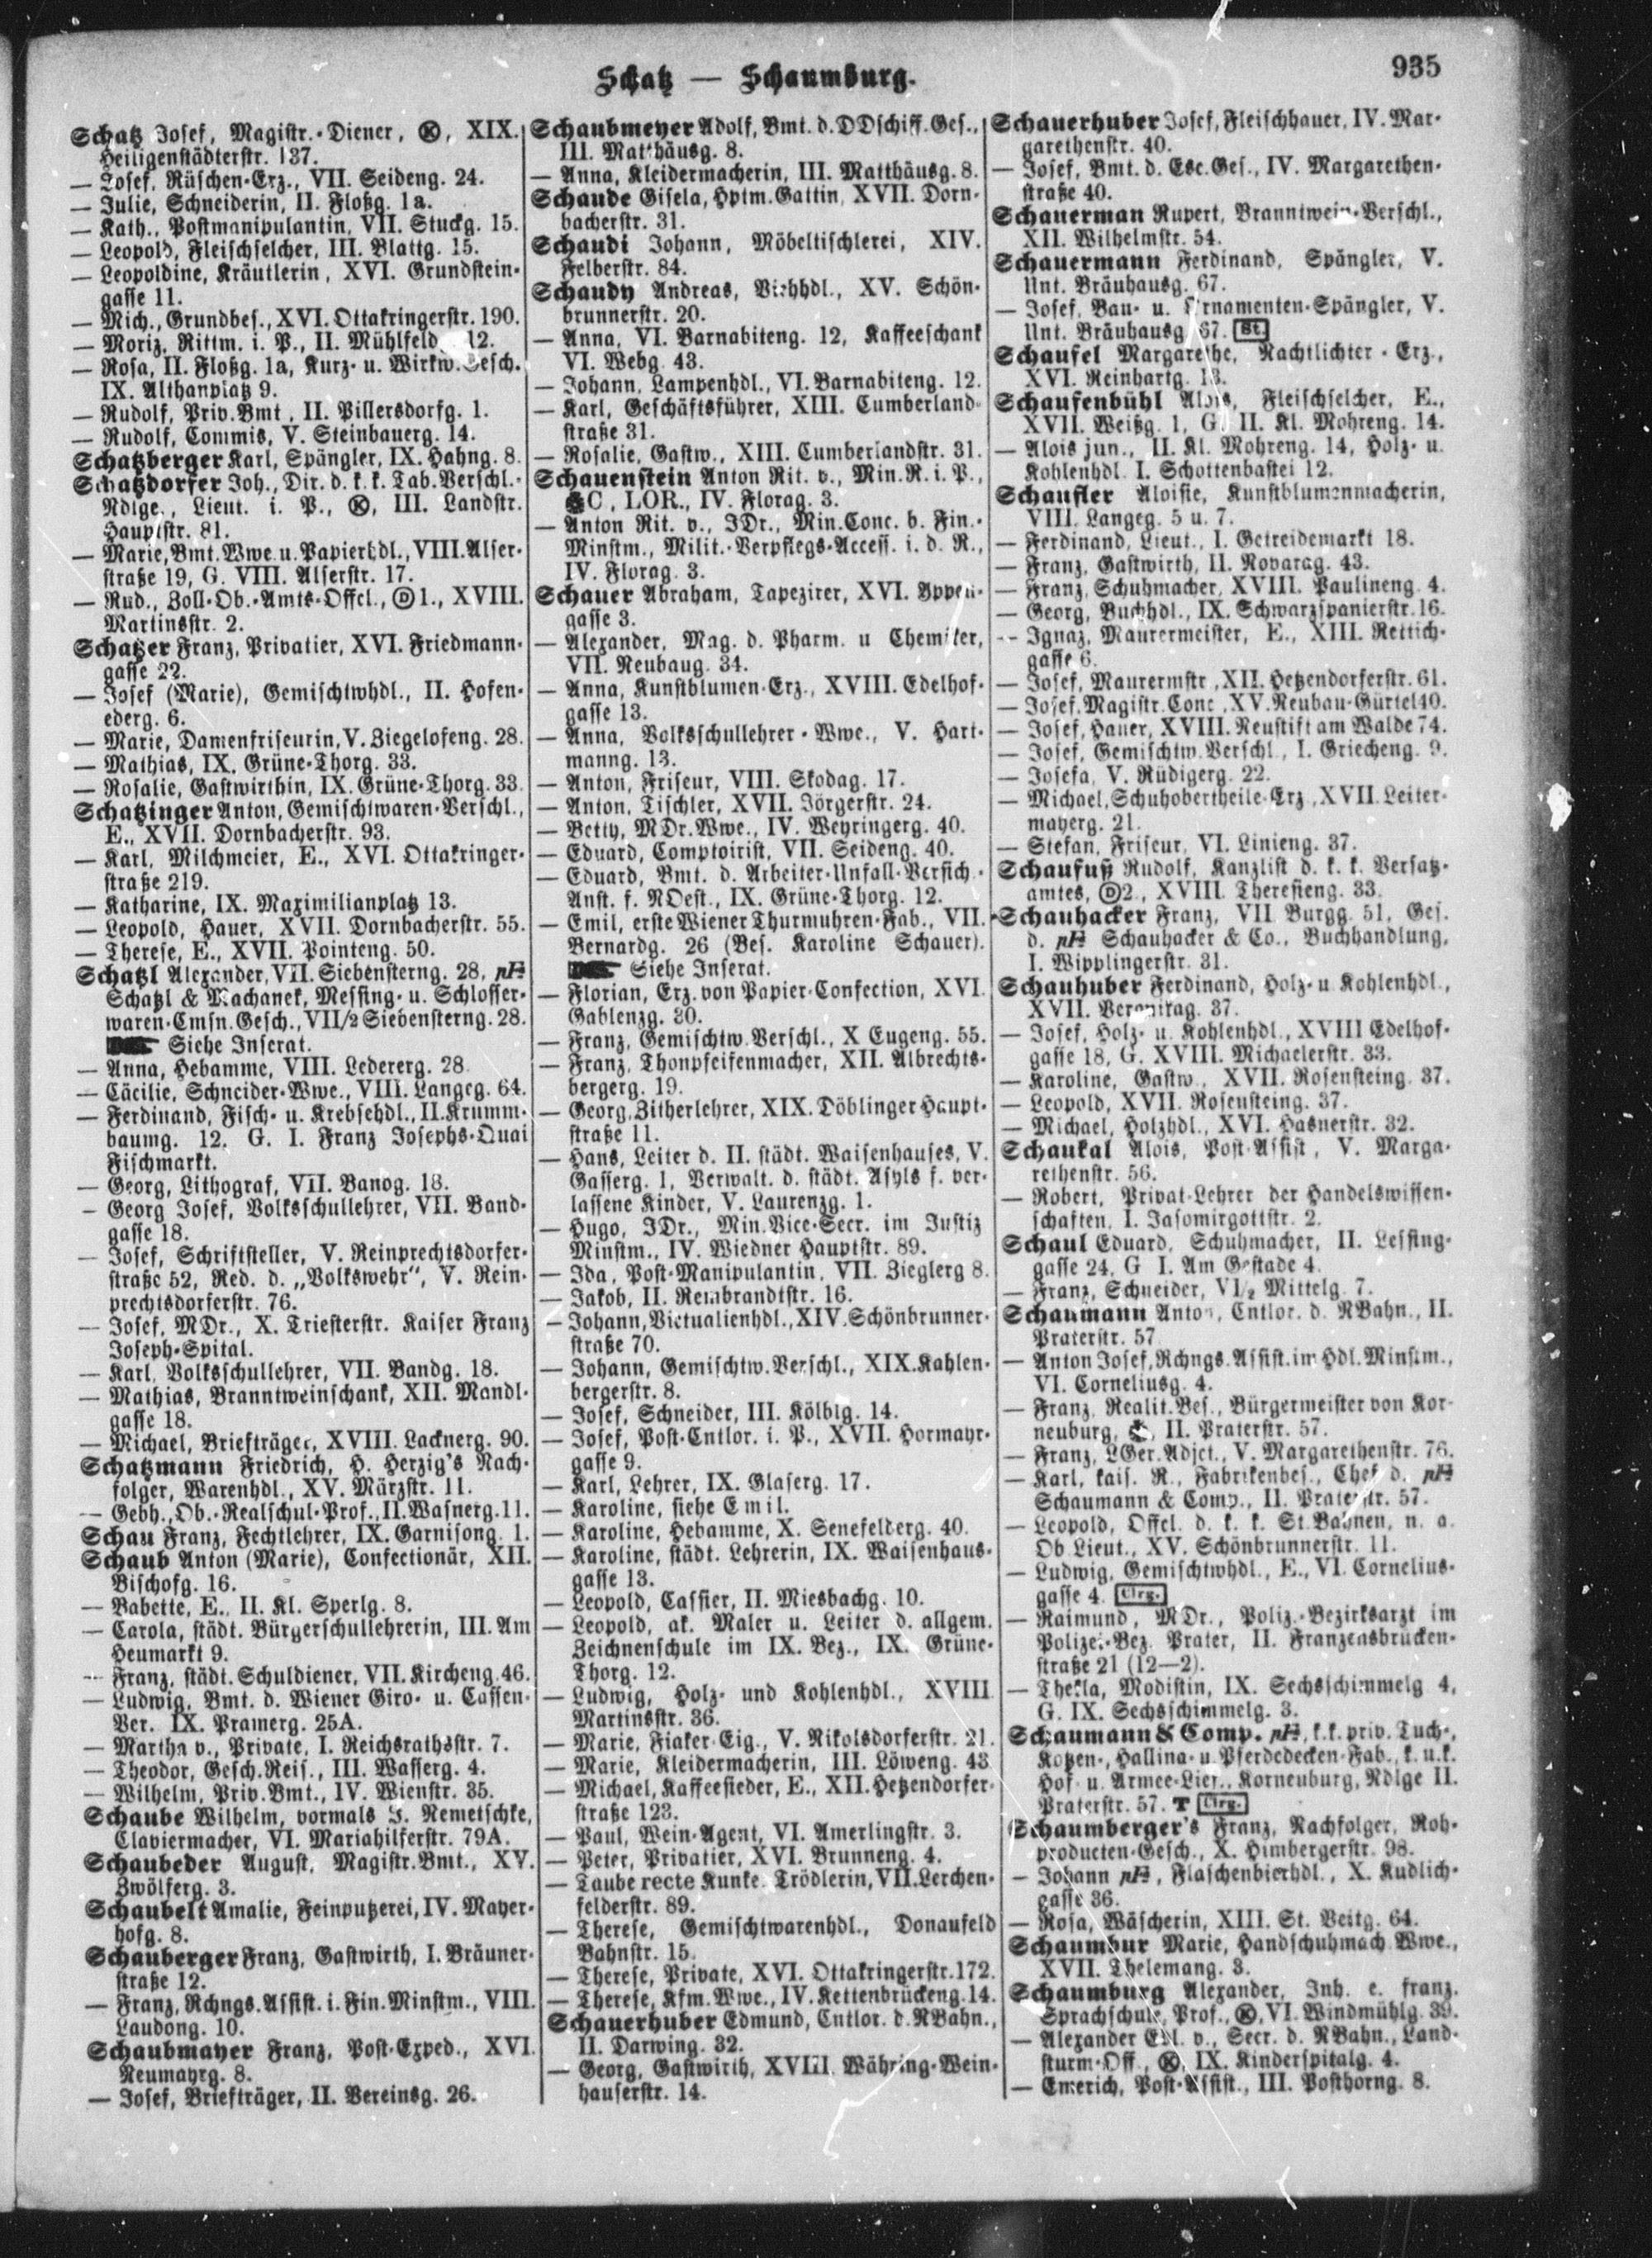 Schatz — Schaumburg.
935
Schatz Josef, Magistr.-Diener, XIX.
Heiligenstädterstr. 137.
— Josef, Rüschen-Erz., VII. Seideng. 24.
— Julie, Schneiderin, II. Floßg. 1a.
— Kath., Postmanipulantin, VII. Stuckg. 15.
— Leopold, Fleischselcher, III. Blattg. 15.
— Leopoldine, Kräutlerin, XVI. Grundstein-
gasse 11.
— Mich., Grundbes., XVI. Ottakringerstr. 190.
— Moriz, Rittm. i. P., II. Mühlfeld 12.
— Rosa, II. Floßg. 1a, Kurz- u. Wirkw. Gesch.
IX. Althanplatz 9.
— Rudolf, Priv. Bmt, II. Pillersdorfg. 1.
— Rudolf, Commis, V. Steinbauerg. 14.
Schatzberger Karl, Spängler, IX. Hahng. 8.
Schatzdorfer Joh., Dir. d. k. k. Tab. Verschl.-
Ndlge., Lieut. i. P., III. Landstr.
Hauptstr. 81.
— Marie, Bmt. Wwe. u. Papierhdl., VIII. Alser-
straße 19, G. VIII. Alserstr. 17.
— Rud., Zoll-Ob.-Amts-Offcl., Ⓓ1., XVIII.
Martinsstr. 2.
Schatzer Franz, Privatier, XVI. Friedmann-
gasse 22.
— Josef (Marie), Gemischtwhdl., II. Hofen-
ederg. 6.
— Marie, Damenfriseurin, V. Ziegelofeng. 28.
— Mathias, IX. Grüne-Thorg. 33.
— Rosalie, Gastwirthin, IX. Grüne-Thorg. 33.
Schatzinger Anton, Gemischtwaren-Verschl.,
E., XVII. Dornbacherstr. 93.
— Karl, Milchmeier, E., XVI. Ottakringer-
straße 219.
— Katharine, IX. Maximilianplatz 13.
— Leopold, Hauer, XVII. Dornbacherstr. 55.
— Therese, E., XVII. Pointeng. 50.
Schatzl Alexander, VII. Siebensterng. 28, pF
Schatzl & Machanek, Messing- u. Schlosser-
waren-Cmsn. Gesch., VII/2 Siebensterng. 28.
Siehe Inserat.
— Anna, Hebamme, VIII. Ledererg. 28
— Cäcilie, Schneider-Wwe., VIII. Langeg. 64.
— Ferdinand, Fisch- u. Krebsehdl., II. Krumm-
baumg. 12. G. I. Franz Josephs-Quai
Fischmarkt.
— Georg, Lithograf, VII. Bandg. 18.
— Georg Josef, Volksschullehrer, VII. Band-
gasse 18.
— Josef, Schriftsteller, V. Reinprechtsdorfer-
straße 52, Red. d. „Volkswehr“, V. Rein-
prechtsdorferstr. 76.
— Josef, MDr., X. Triesterstr. Kaiser Franz
Joseph-Spital.
— Karl, Volksschullehrer, VII. Bandg. 18.
— Mathias, Branntweinschank, XII. Mandl-
gasse 18.
— Michael, Briefträger, XVIII. Lacknerg. 90.
Schatzmann Friedrich, H. Herzig's Nach-
folger, Warenhdl., XV. Märzstr. 11.
— Gebh., Ob.-Realschul-Prof., II. Wasnerg. 11.
Schau Franz, Fechtlehrer, IX. Garnisong. 1.
Schaub Anton (Marie), Confectionär, XII.
Bischofg. 16.
— Babette, E., II. Kl. Sperlg. 8.
— Carola, städt. Bürgerschullehrerin, III. Am
Heumarkt 9.
— Franz, städt. Schuldiener, VII. Kircheng. 46.
— Ludwig, Bmt. d. Wiener Giro- u. Cassen-
Ver. IX. Pramerg. 25A.
— Martha v., Private, I. Reichsrathsstr. 7.
— Theodor, Gesch. Reis., III. Wasserg. 4.
— Wilhelm, Priv. Bmt., IV. Wienstr. 35.
Schaube Wilhelm, vormals J. Nemetschke,
Claviermacher, VI. Mariahilferstr. 79A.
Schaubeder August, Magistr. Bmt., XV.
Zwölferg. 3.
Schaubelt Amalie, Feinputzerei, IV. Mayer-
hofg. 8.
Schauberger Franz, Gastwirth, I. Bräuner-
straße 12.
— Franz, Rchngs. Assist. i. Fin. Minstm., VIII.
Laudong. 10.
Schaubmayer Franz, Post-Exped., XVI.
Neumayrg. 8.
— Josef, Briefträger, II. Vereinsg. 26.
Schaubmeyer Adolf, Bmt. d. DDschiff. Ges.,
III. Matthäusg. 8.
— Anna, Kleidermacherin, III. Matthäusg. 8.
Schaude Gisela, Hptm. Gattin, XVII. Dorn-
bacherstr. 31.
Schaudi Johann, Möbeltischlerei, XIV.
Felberstr. 84.
Schaudy Andreas, Viehhdl., XV. Schön-
brunnerstr. 20.
— Anna, VI. Barnabiteng. 12, Kaffeeschank
VI. Webg. 43.
— Johann, Lampenhdl., VI. Barnabiteng. 12.
— Karl, Geschäftsführer, XIII. Cumberland-
straße 31.
— Rosalie, Gastw., XIII. Cumberlandstr. 31.
Schauenstein Anton Rit. v., Min. R. i. P.,
C, LOR., IV. Florag. 3.
— Anton Rit. v., JDr., Min. Conc. b. Fin.-
Minstm., Milit.-Verpflegs-Access. i. d. R.,
IV. Florag. 3.
Schauer Abraham, Tapezirer, XVI. Yppen-
gasse 3.
— Alexander, Mag. d. Pharm. u Chemiker,
VII. Neubaug. 34.
— Anna, Kunstblumen-Erz., XVIII. Edelhof-
gasse 13.
— Anna, Volksschullehrer-Wwe., V. Hart-
manng. 13.
— Anton, Friseur, VIII. Skodag. 17.
— Anton, Tischler, XVII. Jörgerstr. 24.
— Betty, MDr. Wwe., IV. Weyringerg. 40.
— Eduard, Comptoirist, VII. Seideng. 40.
— Eduard, Bmt. d. Arbeiter-Unfall-Versich.-
Anst. f. NOest., IX. Grüne-Thorg. 12.
— Emil, erste Wiener Thurmuhren-Fab., VII.
Bernardg. 26 (Bes. Karoline Schauer).
Siehe Inserat.
— Florian, Erz. von Papier-Confection, XVI.
Gablenzg. 30.
— Franz, Gemischtw. Verschl., X Eugeng. 55.
— Franz, Thonpfeifenmacher, XII. Albrechts-
bergerg. 19.
— Georg, Zitherlehrer, XIX. Döblinger Haupt-
straße 11.
— Hans, Leiter d. II. städt. Waisenhauses, V.
Gasserg. 1, Verwalt. d. städt. Asyls f. ver-
lassene Kinder, V. Laurenzg. 1.
— Hugo, JDr., Min. Vice-Secr. im Justiz
Minstm., IV. Wiedner Hauptstr. 89.
— Ida, Post-Manipulantin, VII. Zieglerg 8.
— Jakob, II. Rembrandtstr. 16.
— Johann, Victualienhdl., XIV. Schönbrunner-
straße 70.
— Johann, Gemischtw. Verschl., XIX. Kahlen-
bergerstr. 8.
— Josef, Schneider, III. Kölblg. 14.
— Josef, Post-Cntlor. i. P., XVII. Hormayr-
gasse 9.
— Karl, Lehrer, IX. Glaserg. 17.
— Karoline, siehe Emil.
— Karoline, Hebamme, X. Senefelderg. 40.
— Karoline, städt. Lehrerin, IX. Waisenhaus-
gasse 13.
— Leopold, Cassier, II. Miesbachg. 10.
— Leopold, ak. Maler u. Leiter d. allgem.
Zeichnenschule im IX. Bez., IX. Grüne-
Thorg. 12.
— Ludwig, Holz- und Kohlenhdl., XVIII
Martinsstr. 36.
— Marie, Fiaker-Eig., V. Nikolsdorferstr. 21.
— Marie, Kleidermacherin, III. Löweng. 43
— Michael, Kaffeesieder, E., XII. Hetzendorfer-
straße 123.
— Paul, Wein-Agent, VI. Amerlingstr. 3.
— Peter, Privatier, XVI. Brunneng. 4.
— Taube recte Kunke, Trödlerin, VII. Lerchen-
felderstr. 89.
— Therese, Gemischtwarenhdl., Donaufeld
Bahnstr. 15.
— Therese, Private, XVI. Ottakringerstr. 172.
— Therese, Kfm. Wwe., IV. Kettenbrückeng. 14.
Schauerhuber Edmund, Cntlor. d. NBahn.,
II. Darwing. 32.
— Georg, Gastwirth, XVIII. Währing-Wein-
hauserstr. 14.
Schauerhuber Josef, Fleischhauer, IV. Mar-
garethenstr. 40.
— Josef, Bmt. d. Esc. Ges., IV. Margarethen-
straße 40.
Schauerman Rupert, Branntwein-Verschl.,
XII. Wilhelmstr. 54.
Schauermann Ferdinand, Spängler, V.
Unt. Bräuhausg. 67.
— Josef, Bau- u. Ornamenten-Spängler, V.
Unt. Bräuhausg 67. St.
Schaufel Margarethe, Nachtlichter-Erz.,
XVI. Reinhartg. 13.
Schaufenbühl Alois, Fleischselcher, E.,
XVII. Weißg. 1, G. II. Kl. Mohreng. 14.
— Alois jun., II. Kl. Mohreng. 14, Holz- u.
Kohlenhdl. I. Schottenbastei 12.
Schaufler Aloisie, Kunstblumenmacherin,
VIII. Langeg. 5 u. 7.
— Ferdinand, Lieut., I. Getreidemarkt 18.
— Franz, Gastwirth, II. Novarag. 43.
— Franz, Schuhmacher, XVIII. Paulineng. 4.
— Georg, Buchhdl., IX. Schwarzspanierstr. 16.
— Ignaz, Maurermeister, E., XIII. Rettich-
gasse 6.
— Josef, Maurermstr, XII. Hetzendorferstr. 61.
— Josef, Magistr. Conc, XV. Neubau-Gürtel 40.
— Josef, Hauer, XVIII. Neustift am Walde 74.
— Josef, Gemischtw. Verschl., I. Griecheng. 9.
— Josefa, V. Rüdigerg. 22.
— Michael, Schuhobertheile-Erz., XVII. Leiter-
mayerg. 21.
— Stefan, Friseur, VI. Linieng. 37.
Schaufuß Rudolf, Kanzlist d. k. k. Versatz-
amtes, Ⓓ2., XVIII. Theresieng. 33.
Schauhacker Franz, VII Burgg. 51, Ges.
d. pF Schauhacker & Co., Buchhandlung,
I. Wipplingerstr. 31.
Schauhuber Ferdinand, Holz- u. Kohlenhdl.,
XVII. 37.
— Josef, Holz- u. Kohlenhdl., XVIII Edelhof-
gasse 18, G. XVIII. Michaelerstr. 33.
— Karoline, Gastw., XVII. Rosensteing. 37.
— Leopold, XVII. Rosensteing. 37.
— Michael, Holzhdl., XVI. Hasnerstr. 32.
Schaukal Alois, Post-Assist, V. Marga-
rethenstr. 56.
— Robert, Privat-Lehrer der Handelswissen-
schaften, I. Jasomirgottstr. 2.
Schaul Eduard, Schuhmacher, II. Lessing-
gasse 24, G I. Am Gestade 4.
— Franz, Schneider, VI/2 Mittelg. 7.
Schaumann Anton, Cntlor. d. NBahn., II.
Praterstr. 57
— Anton Josef, Rchngs. Assist. im Hdl. Minstm.,
VI. Corneliusg. 4.
— Franz, Realit. Bes., Bürgermeister von Kor-
neuburg, II. Praterstr. 57.
— Franz, LGer. Adjct., V. Margarethenstr. 76.
— Karl, kais. R., Fabrikenbes., Chef d. pF
Schaumann & Comp., II. Praterstr. 57.
— Leopold, Offcl. d. k. k. St. Bahnen, n. a.
Ob. Lieut., XV. Schönbrunnerstr. 11.
— Ludwig, Gemischtwhdl., E., VI. Cornelius-
gasse 4. Clrg.
— Raimund, MDr., Poliz.-Bezirksarzt im
Polizei-Bez. Prater, II. Franzensbrücken-
straße 21 (12—2).
— Thekla, Modistin, IX. Sechsschimmelg 4,
G. IX. Sechsschimmelg. 3.
Schaumann & Comp. pF, k. k. priv. Tuch-,
Kotzen-, Hallina- u. Pferdedecken-Fab., k. u. k.
Hof- u. Armee-Lief., Korneuburg, Ndlge II.
Praterstr. 57. T Clrg.
Schaumberger's Franz, Nachfolger, Roh-
producten-Gesch., X. Himbergerstr. 98.
— Johann pF, Flaschenbierhdl., X. Kudlich-
gasse 36.
— Rosa, Wäscherin, XIII. St. Veitg. 64.
Schaumbur Marie, Handschuhmach. Wwe.,
XVII. Thelemang. 3.
Schaumburg Alexander, Inh. e. franz.
Sprachschule, Prof., VI. Windmühlg. 39.
— Alexander Edl. v., Secr. d. NBahn., Land-
sturm-Off., IX. Kinderspitalg. 4.
— Emerich, Post-Assist., III. Posthorng. 8.